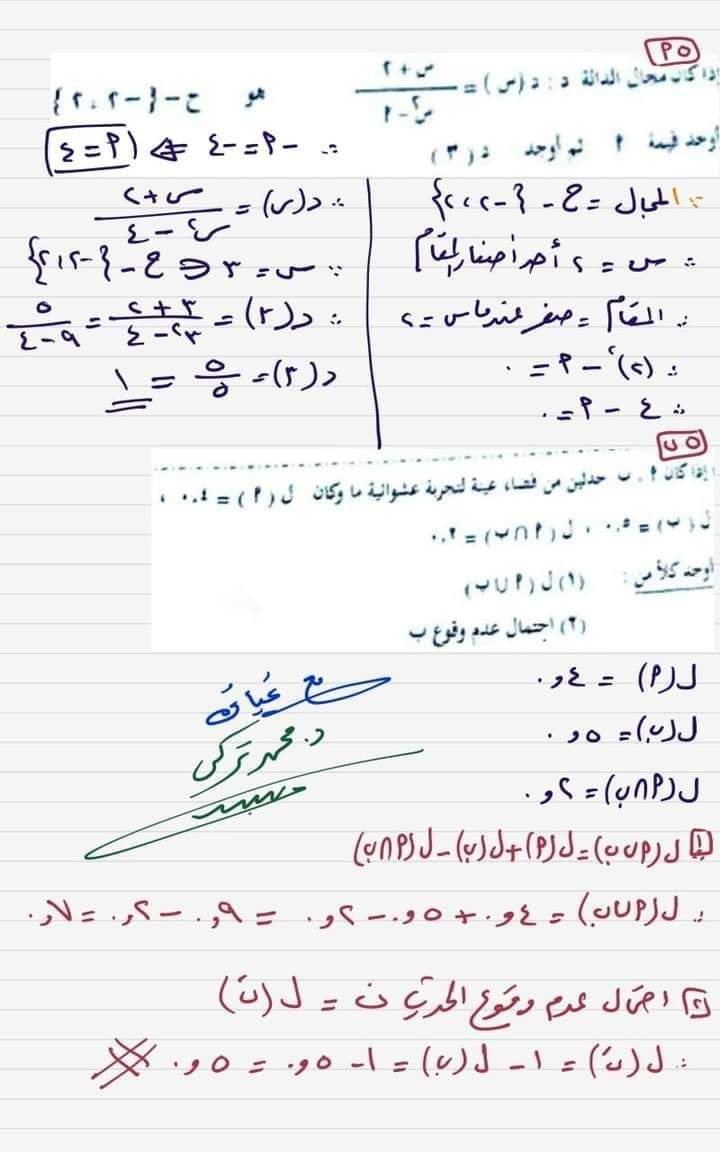 ٥ أ
إذا كان مجال الدالة د : د(س) = (س + ٢) / (س٢ - أ) هو ح - {-٢ ، ٢}
أوجد قيمة أ ثم أوجد د(٣)
∵ المجال = ح - {-٢ ، ٢}
∴ س = ٢ أحد أصفار المقام
∴ المقام = صفر عندما س = ٢
∴ (٢)٢ - أ = ٠
∴ ٤ - أ = ٠
∴ - أ = -٤ ⇐ أ = ٤
∴ د(س) = (س + ٢) / (س٢ - ٤)
∵ س = ٣ ∈ ح - {-٢ ، ٢}
∴ د(٣) = (٣ + ٢) / (٣٢ - ٤) = ٥ / (٩ - ٤)
د(٣) = ٥ / ٥ = ١
٥ ب
إذا كان أ ، ب حدثين من فضاء عينة لتجربة عشوائية ما وكان ل(أ) = ٠.٤ ،
ل(ب) = ٠.٥ ، ل(أ ∩ ب) = ٠.٢
أوجد كلاً من : (١) ل(أ ∪ ب)
(٢) احتمال عدم وقوع ب
ل(أ) = ٠,٤
ل(ب) = ٠,٥
ل(أ ∩ ب) = ٠,٢
مع
د. محمد تركى
١ ل(أ ∪ ب) = ل(أ) + ل(ب) - ل(أ ∩ ب)
∴ ل(أ ∪ ب) = ٠,٤ + ٠,٥ - ٠,٢ = ٠,٩ - ٠,٢ = ٠,٧
٢ احتمال عدم وقوع الحدث ب = ل(بَ)
∴ ل(بَ) = ١ - ل(ب) = ١ - ٠,٥ = ٠,٥